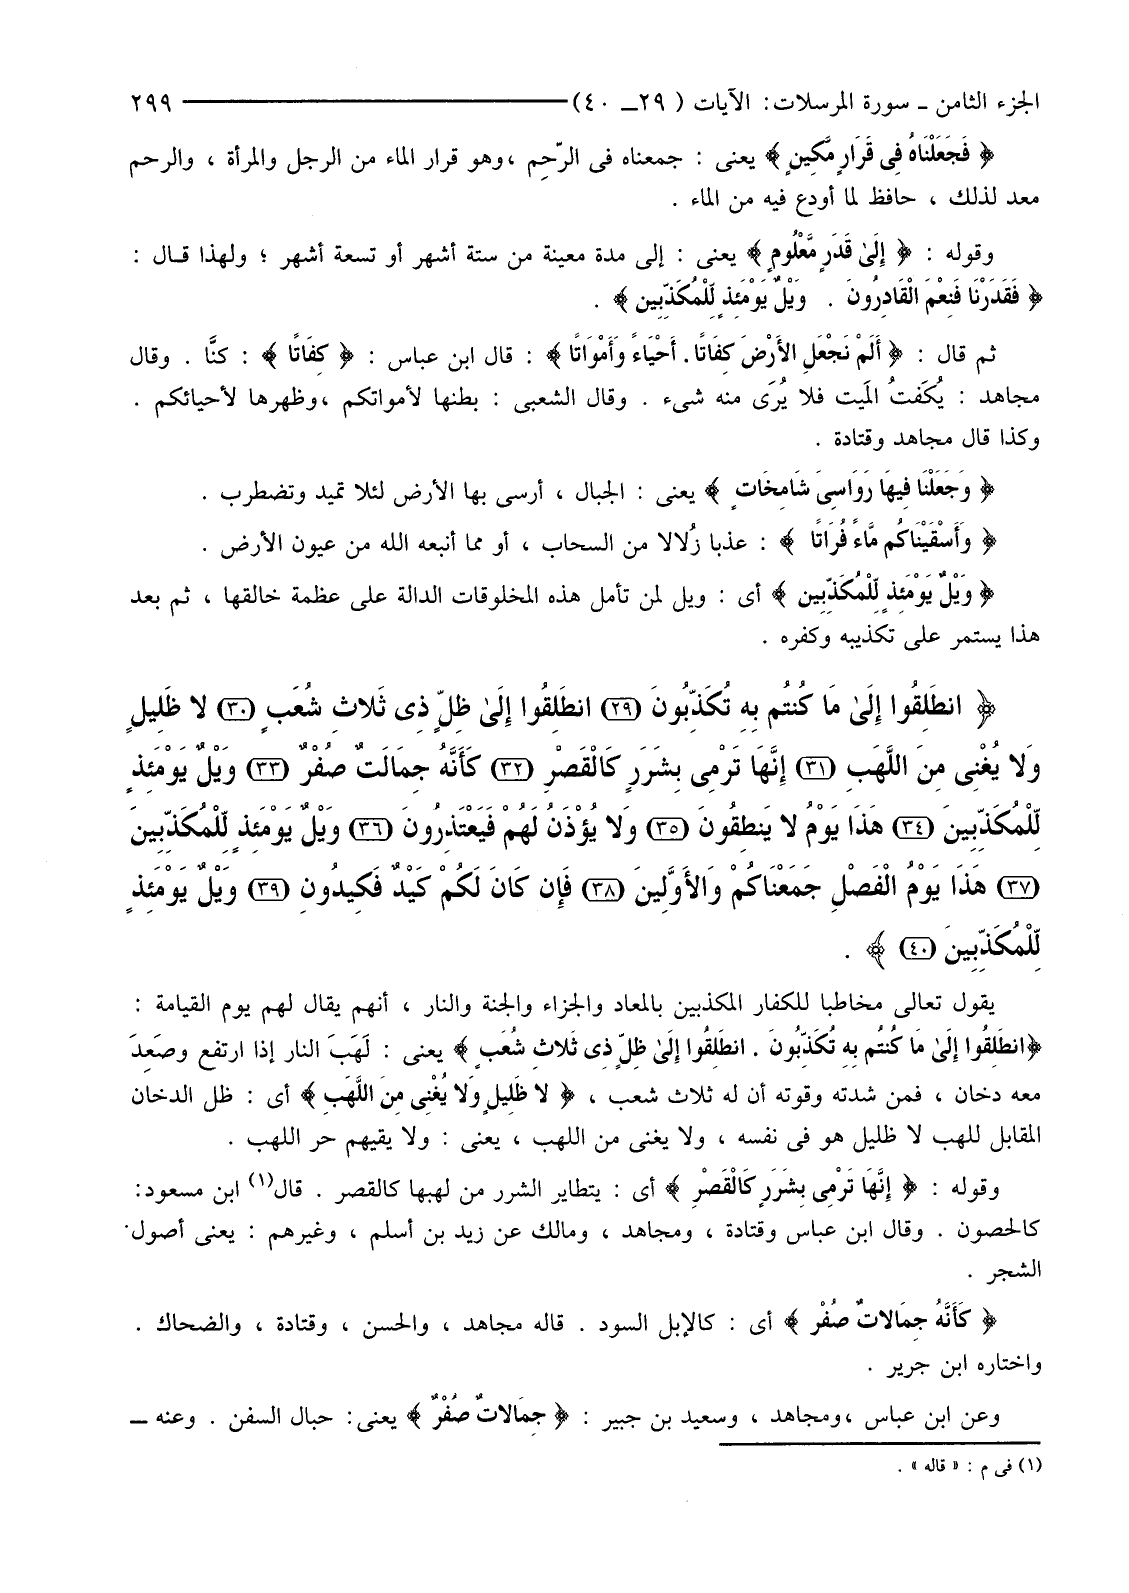 الجزء الثامن ـ سورة المرسلات: الآيات ( ٢٩ـ ٤٠) ٢٩٩
﴿ فَجَعَلْنَاهُ فِى قَرَارٍ مَّكِينٍ ﴾ يعنى : جمعناه فى الرّحِم ،وهو قرار الماء من الرجل والمرأة ، والرحم
معد لذلك ، حافظ لما أودع فيه من الماء .
وقوله : ﴿ إِلَىٰ قَدَرٍ مَّعْلُومٍ ﴾ يعنى : إلى مدة معينة من ستة أشهر أو تسعة أشهر ؛ ولهذا قـال :
﴿ فَقَدَرْنَا فَنِعْمَ الْقَادِرُونَ . وَيْلٌ يَوْمَئِذٍ لِّلْمُكَذِّبِين ﴾ .
ثم قال : ﴿ أَلَمْ نَجْعَلِ الأَرْضَ كِفَاتًا. أَحْيَاءً وَأَمْوَاتًا ﴾ : قال ابن عباس : ﴿ كِفَاتًا ﴾ : كنَّا . وقال
مجاهد : يُكفَتُ المَيت فلا يُرَى منه شىء . وقال الشعبى : بطنها لأمواتكم ،وظهرها لأحيائكم .
وكذا قال مجاهد وقتادة .
﴿ وَجَعَلْنَا فِيهَا رَوَاسِىَ شَامِخَاتٍ ﴾ يعنى : الجبال ، أرسى بها الأرض لئلا تميد وتضطرب .
﴿ وَأَسْقَيْنَاكُم مَّاءً فُرَاتًا ﴾ : عذبا زُلالا من السحاب ، أو مما أنبعه الله من عيون الأرض .
﴿ وَيْلٌ يَوْمَئِذٍ لِّلْمُكَذِّبِين ﴾ أى : ويل لمن تأمل هذه المخلوقات الدالة على عظمة خالقها ، ثم بعد
هذا يستمر على تكذيبه وكفره .
﴿ انطَلِقُوا إِلَىٰ مَا كُنتُم بِهِ تُكَذِّبُونَ (٢٩) انطَلِقُوا إِلَىٰ ظِلٍّ ذِى ثَلاثِ شُعَبٍ (٣٠) لا ظَلِيلٍ
وَلا يُغْنِى مِنَ اللَّهَبِ (٣١) إِنَّهَا تَرْمِى بِشَرَرٍ كَالْقَصْرِ (٣٢) كَأَنَّهُ جِمَالَتٌ صُفْرٌ (٣٣) وَيْلٌ يَوْمَئِذٍ
لِّلْمُكَذِّبِينَ (٣٤) هَذَا يَوْمُ لا يَنطِقُونَ (٣٥) وَلا يُؤْذَنُ لَهُمْ فَيَعْتَذِرُونَ (٣٦) وَيْلٌ يَوْمَئِذٍ لِّلْمُكَذِّبِينَ
(٣٧) هَذَا يَوْمُ الْفَصْلِ جَمَعْنَاكُمْ وَالأَوَّلِينَ (٣٨) فَإِن كَانَ لَكُمْ كَيْدٌ فَكِيدُونِ (٣٩) وَيْلٌ يَوْمَئِذٍ
لِّلْمُكَذِّبِينَ (٤٠) ﴾ .
يقول تعالى مخاطبا للكفار المكذبين بالمعاد والجزاء والجنة والنار ، أنهم يقال لهم يوم القيامة :
﴿انطَلِقُوا إِلَىٰ مَا كُنتُم بِهِ تُكَذِّبُونَ . انطَلِقُوا إِلَىٰ ظِلٍّ ذِى ثَلاثِ شُعَبٍ ﴾ يعنى : لَهَبَ النار إذا ارتفع وصَعِدَ
معه دخان ، فمن شدته وقوته أن له ثلاث شعب ، ﴿ لا ظَلِيلٍ وَلا يُغْنِى مِنَ اللَّهَبِ ﴾ أى : ظل الدخان
المقابل للهب لا ظليل هو فى نفسه ، ولا يغنى من اللهب ، يعنى : ولا يقيهم حر اللهب .
وقوله : ﴿ إِنَّهَا تَرْمِى بِشَرَرٍ كَالْقَصْرِ ﴾ أى : يتطاير الشرر من لهبها كالقصر . قال(١) ابن مسعود:
كالحصون . وقال ابن عباس وقتادة ، ومجاهد ، ومالك عن زيد بن أسلم ، وغيرهم : يعنى أصول
الشجر .
﴿ كَأَنَّهُ جِمَالاتٌ صُفْر ﴾ أى : كالإبل السود . قاله مجاهد ، والحسن ، وقتادة ، والضحاك .
واختاره ابن جرير .
وعن ابن عباس ،ومجاهد ، وسعيد بن جبير : ﴿ جِمَالاتٌ صُفْرٌ ﴾ يعنى: حبال السفن . وعنه ـ
(١) فى م : « قاله » .